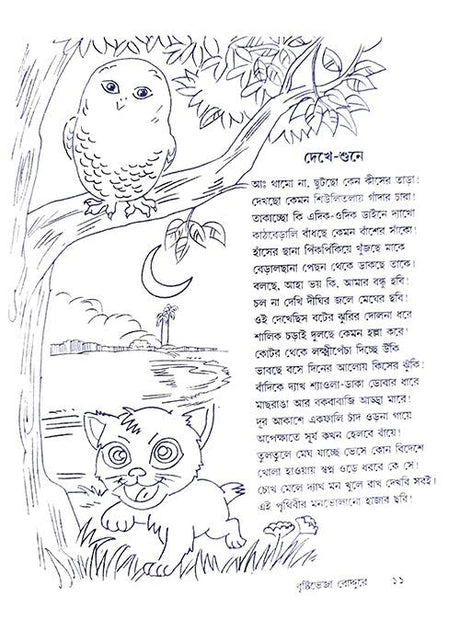 দেখে-শুনে
আঃ থামো না, ছুটছো কেন কীসের তাড়া!
দেখছো কেমন শিউলিতলায় গাঁদার চারা!
তাকাচ্ছো কি এদিক-ওদিক ডাইনে দ্যাখো
কাঠবেড়ালি বাঁধছে কেমন বাঁশের সাঁকো!
হাঁসের ছানা পিঁকপিঁকিয়ে খুঁজছে মাকে
বেড়ালছানা পেছন থেকে ডাকছে তাকে।
বলছে, আহা ভয় কি, আমার বন্ধু হবি!
চল না দেখি দীঘির জলে মেঘের ছবি!
ওই দেখেছিস বটের ঝুরির দোলনা ধরে
শালিক চড়াই দুলছে কেমন হল্লা করে!
কোটর থেকে লক্ষ্মীপেঁচা দিচ্ছে উঁকি
ভাবছে বসে দিনের আলোয় কিসের ঝুঁকি!
বাঁদিকে দ্যাখ শ্যাওলা-ঢাকা ডোবার ধারে
মাছরাঙা আর বকবাবাজি আড্ডা মারে!
দূর আকাশে একফালি চাঁদ ওড়না গায়ে
অপেক্ষাতে সূয কখন হেলবে বাঁয়ে!
তুলতুলে মেঘ যাচ্ছে ভেসে কোন বিদেশে
খোলা হাওয়ায় স্বপ্ন ওড়ে ধরবে কে সে!
চোখ মেলে দ্যাখ মন খুলে রাখ দেখবি সবই।
এই পৃথিবীর মনভোলানো হাজার ছবি!
বৃষ্টিভেজা রোদ্দুরে ১১